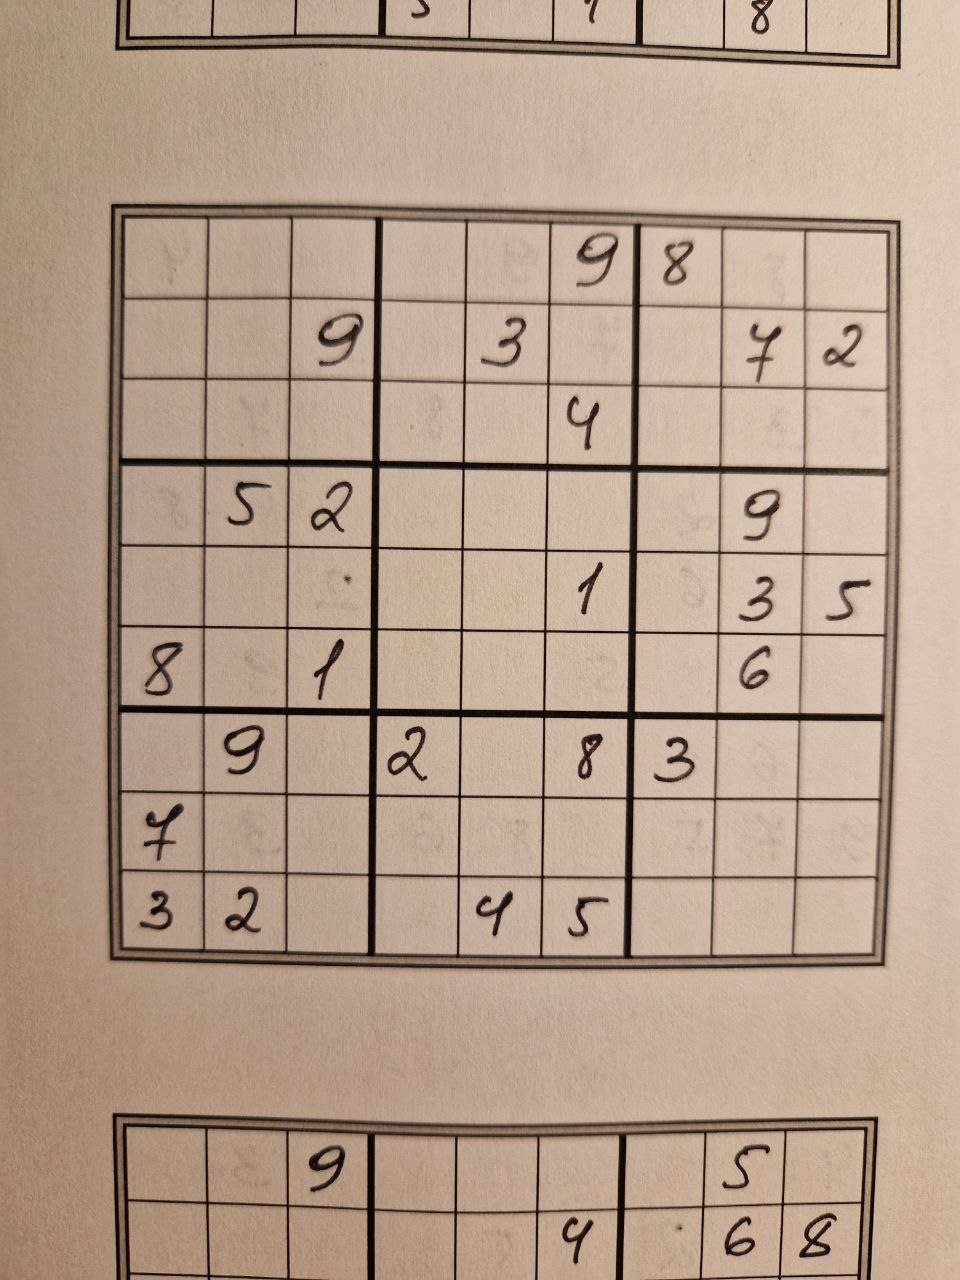 8
9 8
9 3 7 2
4
5 2 9
1 3 5
8 1 6
9 2 8 3
7
3 2 4 5
9 5
4 6 8